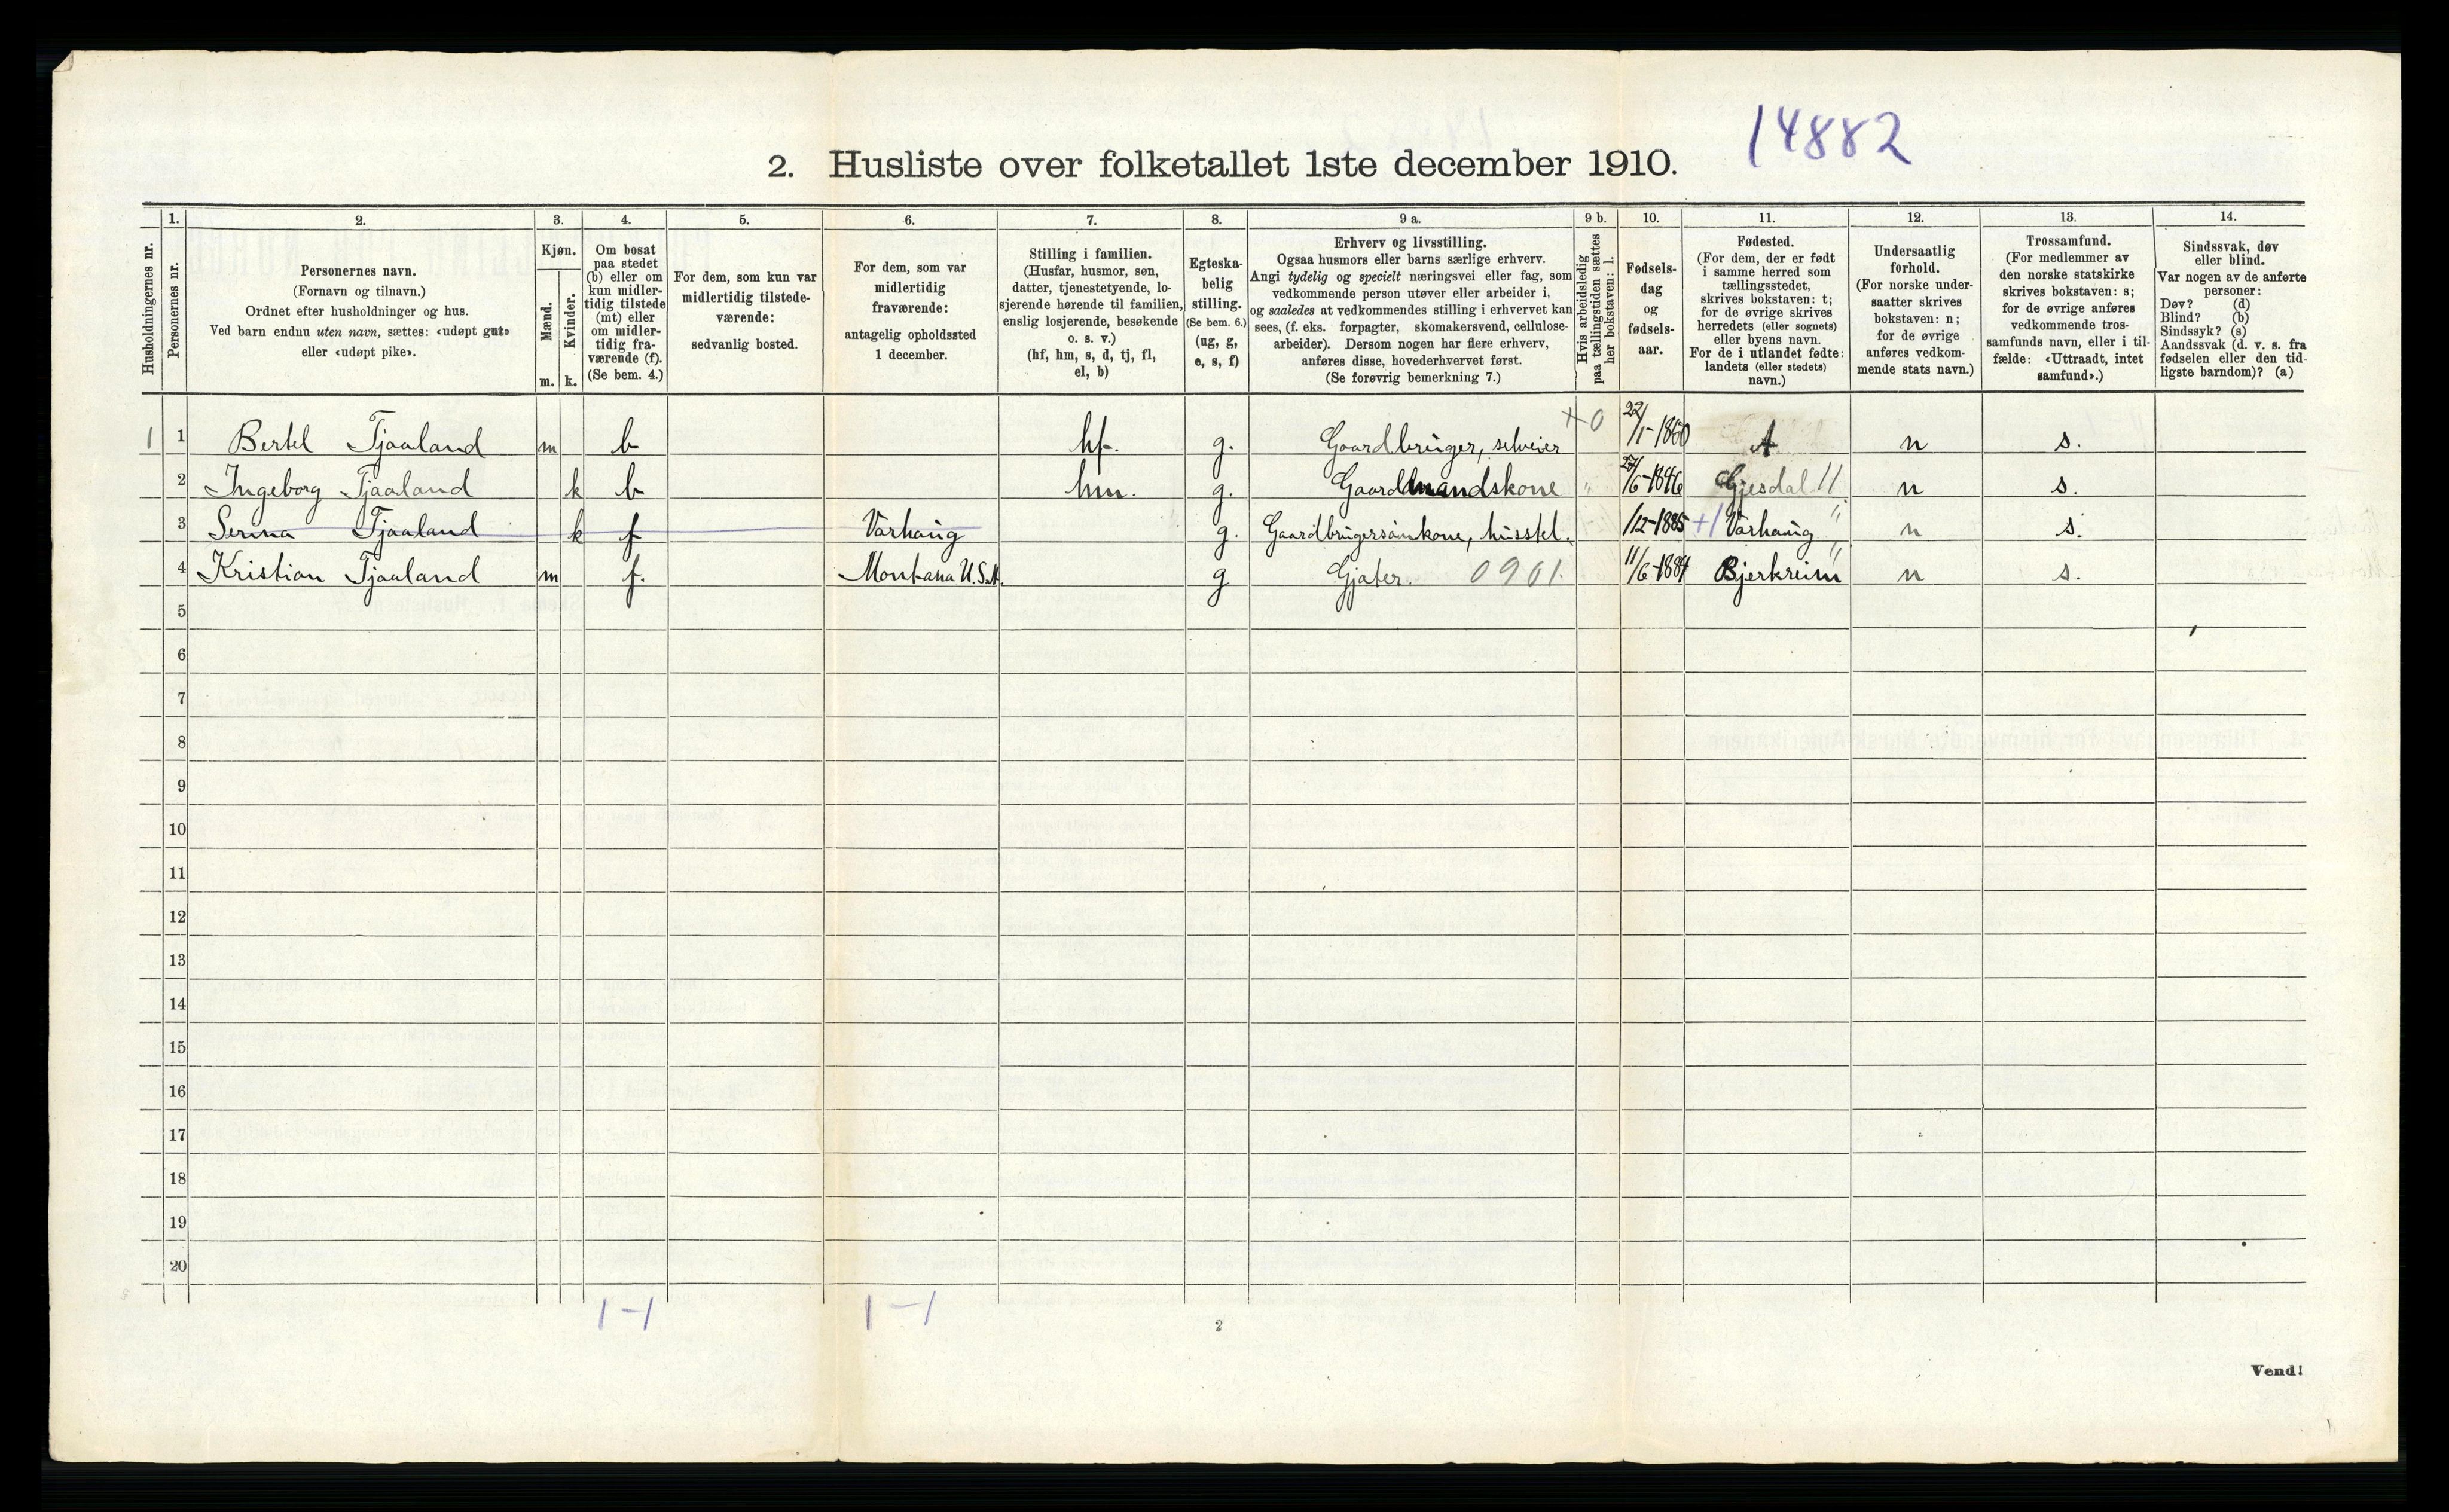 14882
2. Husliste over folketallet 1ste december 1910.
1. 2. 3. 4. 5. 6. 7. 8. 9 a. 9 b. 10. 11. 12. 13. 14.
Husholdningernes nr.
Personernes nr.
Personernes navn.
(Fornavn og tilnavn.)
Ordnet efter husholdninger og hus.
Ved barn endnu uten navn, sættes: «udøpt gut»
eller «udøpt pike».
Kjøn.
Mænd.
Kvinder.
m. k.
Om bosat
paa stedet
(b) eller om
kun midler-
tidig tilstede
(mt) eller
om midler-
tidig fra-
værende (f).
(Se bem. 4.)
For dem, som kun var
midlertidig tilstede-
værende:
sedvanlig bosted.
For dem, som var
midlertidig
fraværende:
antagelig opholdssted
1 december.
Stilling i familien.
(Husfar, husmor, søn,
datter, tjenestetyende, lo-
sjerende hørende til familien,
enslig losjerende, besøkende
o. s. v.)
(hf, hm, s, d, tj, fl,
el, b)
Egteska-
belig
stilling.
(Se bem. 6.)
(ug, g,
e, s, f)
Erhverv og livsstilling.
Ogsaa husmors eller barns særlige erhverv.
Angi tydelig og specielt næringsvei eller fag, som
vedkommende person utøver eller arbeider i,
og saaledes at vedkommendes stilling i erhvervet kan
sees, (f. eks. forpagter, skomakersvend, cellulose-
arbeider). Dersom nogen har flere erhverv,
anføres disse, hovederhvervet først.
(Se forøvrig bemerkning 7.)
Hvis arbeidsledig
paa tællingstiden sættes
her bokstaven: l.
Fødsels-
dag
og
fødsels-
aar.
Fødested.
(For dem, der er født
i samme herred som
tællingsstedet,
skrives bokstaven: t;
for de øvrige skrives
herredets (eller sognets)
eller byens navn.
For de i utlandet fødte:
landets (eller stedets)
navn.)
Undersaatlig
forhold.
(For norske under-
saatter skrives
bokstaven: n;
for de øvrige
anføres vedkom-
mende stats navn.)
Trossamfund.
(For medlemmer av
den norske statskirke
skrives bokstaven: s;
for de øvrige anføres
vedkommende tros-
samfunds navn, eller i til-
fælde: «Uttraadt, intet
samfund».)
Sindssvak, døv
eller blind.
Var nogen av de anførte
personer:
Døv? (d)
Blind? (b)
Sindssyk? (s)
Aandssvak (d. v. s. fra
fødselen eller den tid-
ligste barndom)? (a)
1 1 Bertel Tjaaland m b hf. g. Gaardbruger, selveier +0 22/1-1860 n s.
2 Ingeborg Tjaaland k b hm. g. Gaardmandskone Gjesdal 11 n s.
3 Serina Tjaaland k f Varhaug g. 1/12-1885 +1 Varhaug n s.
4 Kristian Tjaaland m f. Montana U.S.A. g Gjæter. 0901. 11/6-1884 Bjerkreim n s.
5
6
7
8
9
10
11
12
13
14
15
16
17
18
19
20
1-1 1-1
2
Vend!